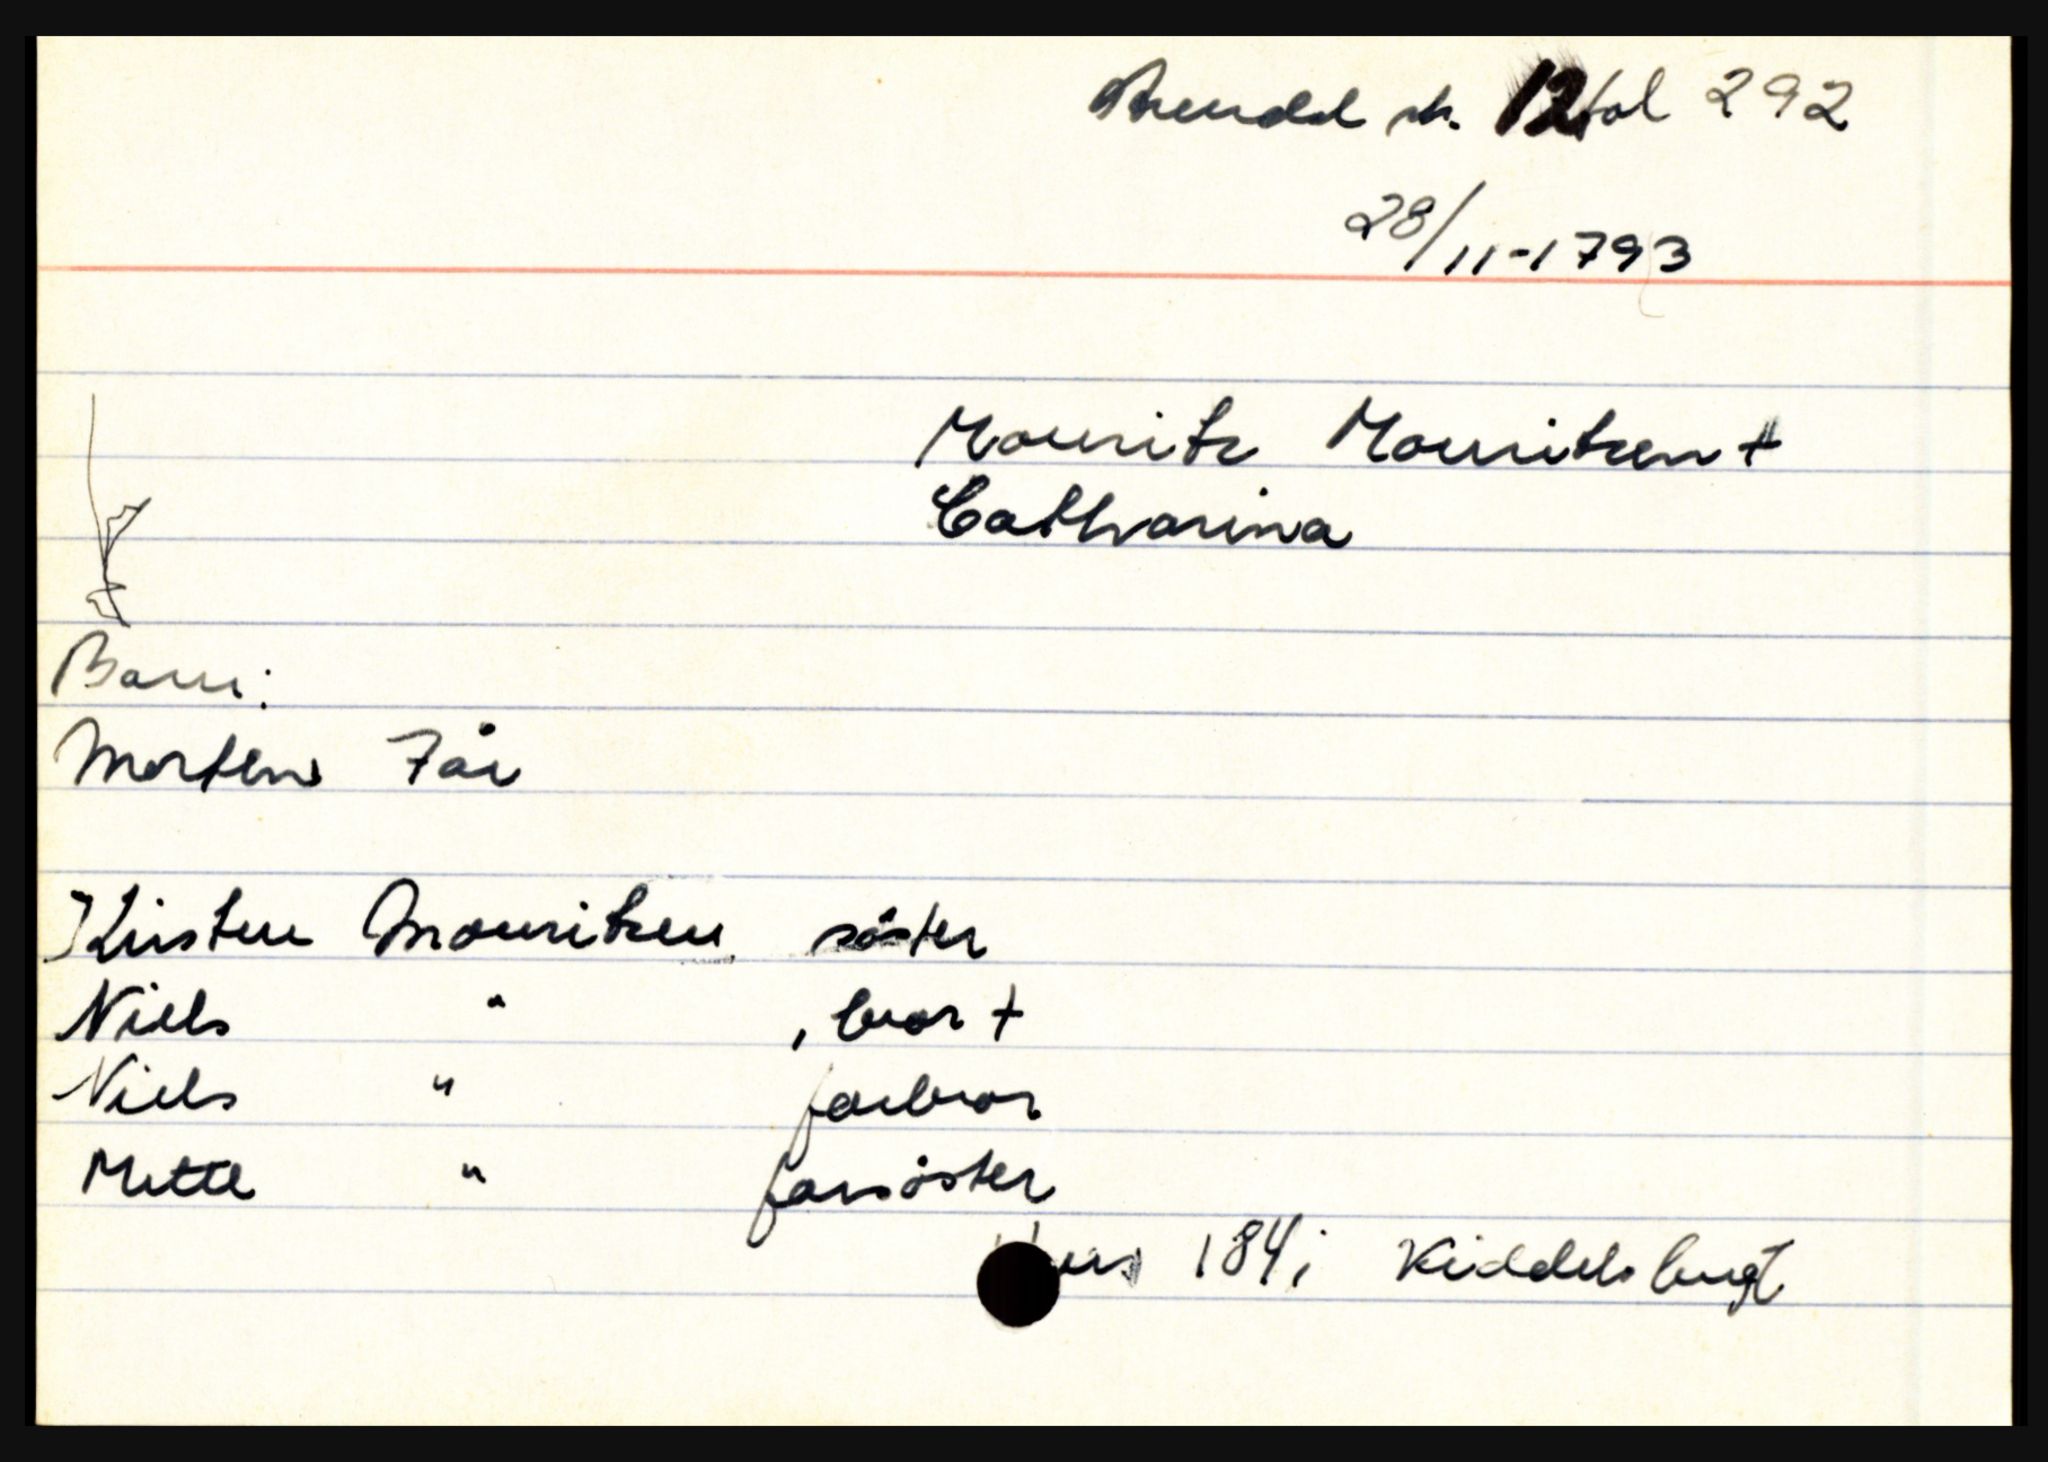 Arendal sk. 12 fol 292
28/11-1793
Mouritz Mouritzen +
Catharina
Barn:
Morten 7 år
Kirsten Mouritzen söster
Niels " , bror +
Niels " farbror
Mette " farsöster
184 i Kiddelsbugt